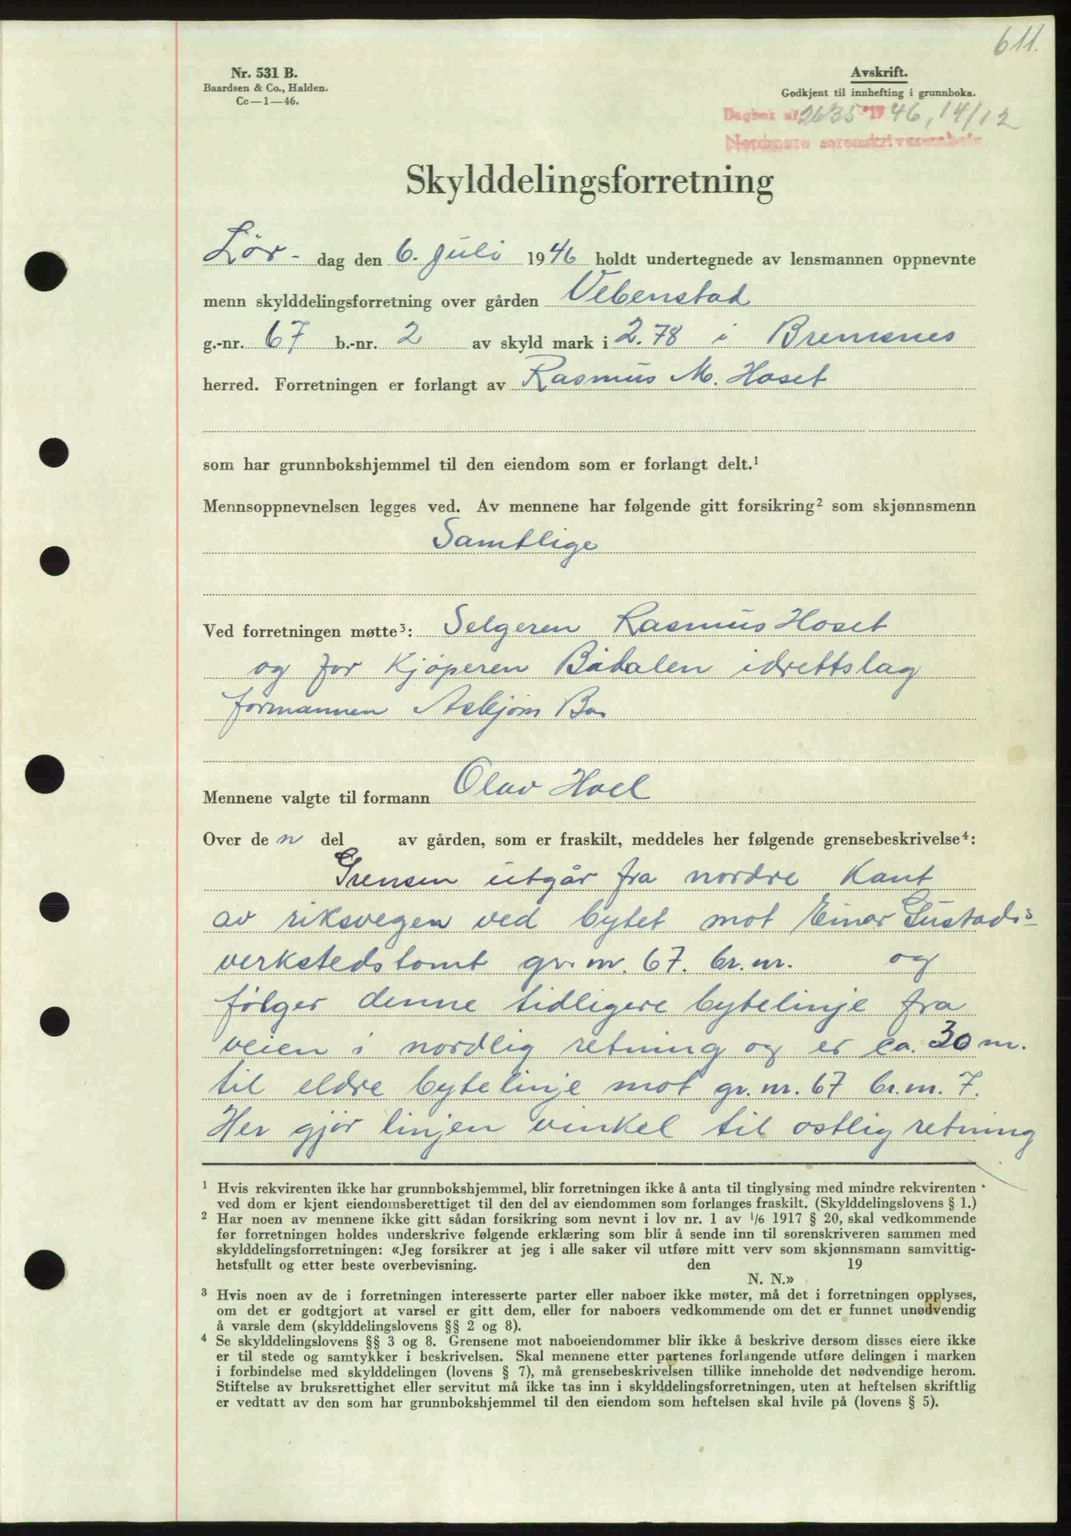 611.
Nr. 531 B.
Baardsen & Co., Halden.
Cc—1—46.
Avskrift.
Godkjent til innhefting i grunnboka.
Dagbok nr 2635 1946, 14/12
Nordmøre sorenskriverembete
Skylddelingsforretning
Lör- dag den 6. juli 1946 holdt undertegnede av lensmannen oppnevnte
menn skylddelingsforretning over gården Vebenstad
g.-nr. 67 b.-nr. 2 av skyld mark i 2.78 i Bremsnes
herred. Forretningen er forlangt av Rasmus M. Hoset
som har grunnbokshjemmel til den eiendom som er forlangt delt.¹
Mennsoppnevnelsen legges ved. Av mennene har følgende gitt forsikring² som skjønnsmenn
Samtlige
Ved forretningen møtte³: Selgeren Rasmus Hoset
og for Kjöperen Bådalen idrettslag
formannen Asbjörn Bae
Mennene valgte til formann Olav Hoel
Over de n del av gården, som er fraskilt, meddeles her følgende grensebeskrivelse⁴:
Grensen utgår fra nordre Kant
av riksvegen ved bytet mot Einar Gustads-
verkstedstomt gr. nr. 67. br. nr. og
følger denne tidligere bytelinje fra
veien i nordlig retning og er ca. 30 m.
til eldre bytelinje mot gr. nr. 67 br. nr. 7.
Her gjør linjen vinkel til ostlig retning
¹ Hvis rekvirenten ikke har grunnbokshjemmel, blir forretningen ikke å anta til tinglysing med mindre rekvirenten
ved dom er kjent eiendomsberettiget til den del av eiendommen som forlanges fraskilt. (Skylddelingslovens § 1.)
² Har noen av mennene ikke gitt sådan forsikring som nevnt i lov nr. 1 av 1/6 1917 § 20, skal vedkommende
før forretningen holdes underskrive følgende erklæring som blir å sende inn til sorenskriveren sammen med
skylddelingsforretningen: «Jeg forsikrer at jeg i alle saker vil utføre mitt verv som skjønnsmann samvittig-
hetsfullt og etter beste overbevisning. den 19
N. N.»
³ Hvis noen av de i forretningen interesserte parter eller naboer ikke møter, må det i forretningen opplyses,
om det er godtgjort at varsel er gitt dem, eller for naboers vedkommende om det er funnet unødvendig
å varsle dem (skylddelingslovens §§ 2 og 8).
⁴ Se skylddelingslovens §§ 3 og 8. Grensene mot naboeiendommer blir ikke å beskrive dersom disses eiere ikke
er til stede og samtykker i beskrivelsen. Skal mennene etter partenes forlangende utføre delingen i marken
i forbindelse med skylddelingen (lovens § 7), må grensebeskrivelsen tillike inneholde det nødvendige herom.
Stiftelse av bruksrettighet eller servitut må ikke tas inn i skylddelingsforretningen, uten at heftelsen skriftlig
er vedtatt av den som har grunnbokshjemmel til den eiendom som heftelsen skal hvile på (lovens § 5).